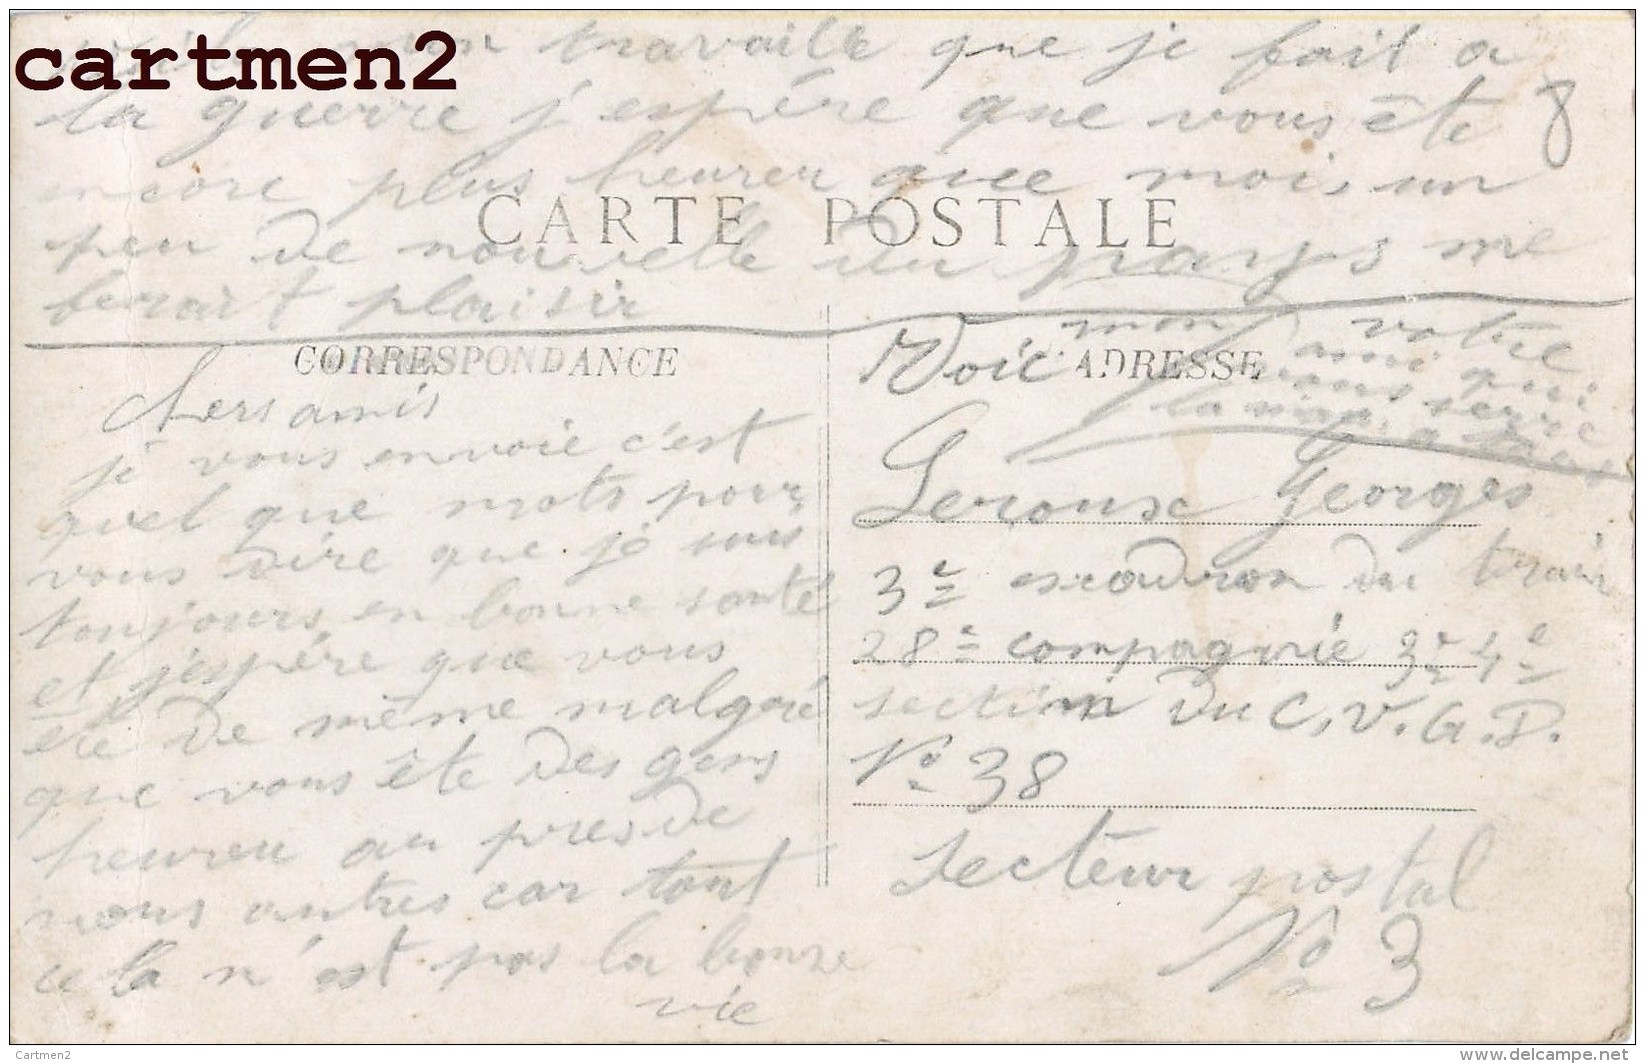 cartmen2
travaille que je fait a
la guerre j'espére que vous ête
encore plus heureu que mois, un
peu de nouvelle du pays me
ferait plaisir
8
CARTE POSTALE
CORRESPONDANCE
Chers amis
je vous envoie c'est
quel que mots pour
vous dire que je suis
toujours en bonne santé
et j'espére que vous
ete de même malgré
que vous ête des gens
heureu au pres de
nous autres car tout
cela n'est pas la bonne
vie
ADRESSE
Voic mon
votre
ami qui
vous serre
la main a tous
Leroux Georges
3e escadron du train
28e compagnie 3e 4e
section du C.V.A.D.
No 38
secteur postal
No 3
Cartmen2
www.delcampe.net